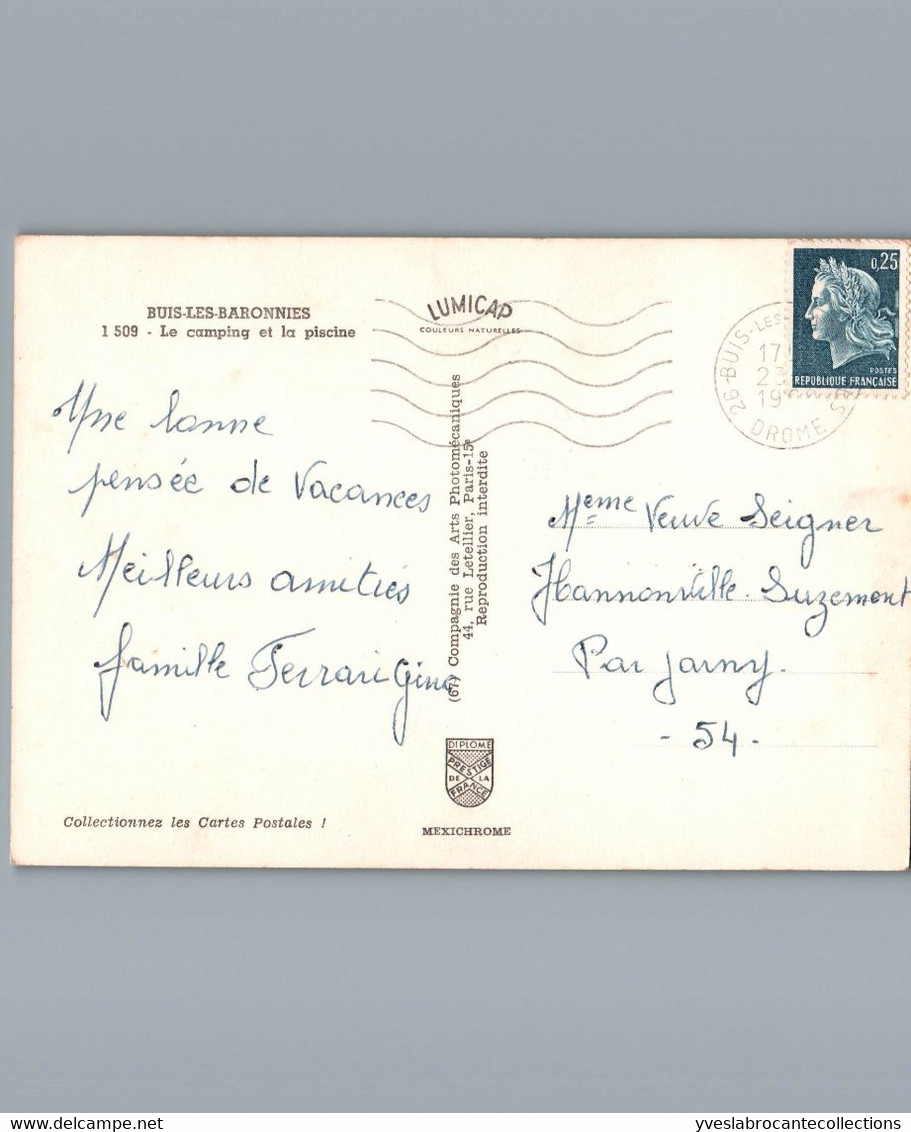 BUIS-LES-BARONNIES
1 509 - Le camping et la piscine
LUMICAP
COULEURS NATURELLES
0,25
POSTES
REPUBLIQUE FRANÇAISE
26-BUIS-LES-
17
19
DROME
Une bonne
pensée de Vacances
Meilleurs amitiés
famille Ferrari Gino
(67) Compagnie des Arts Photomécaniques
44, rue Letellier, Paris-15e
Reproduction interdite
Meme Veuve Seigner
Hannonville-Suzemont
Par Jarny.
- 54 -
DIPLOME
PRESTIGE
DE LA
FRANCE
MEXICHROME
Collectionnez les Cartes Postales !
delcampe.net
yveslabrocantecollections